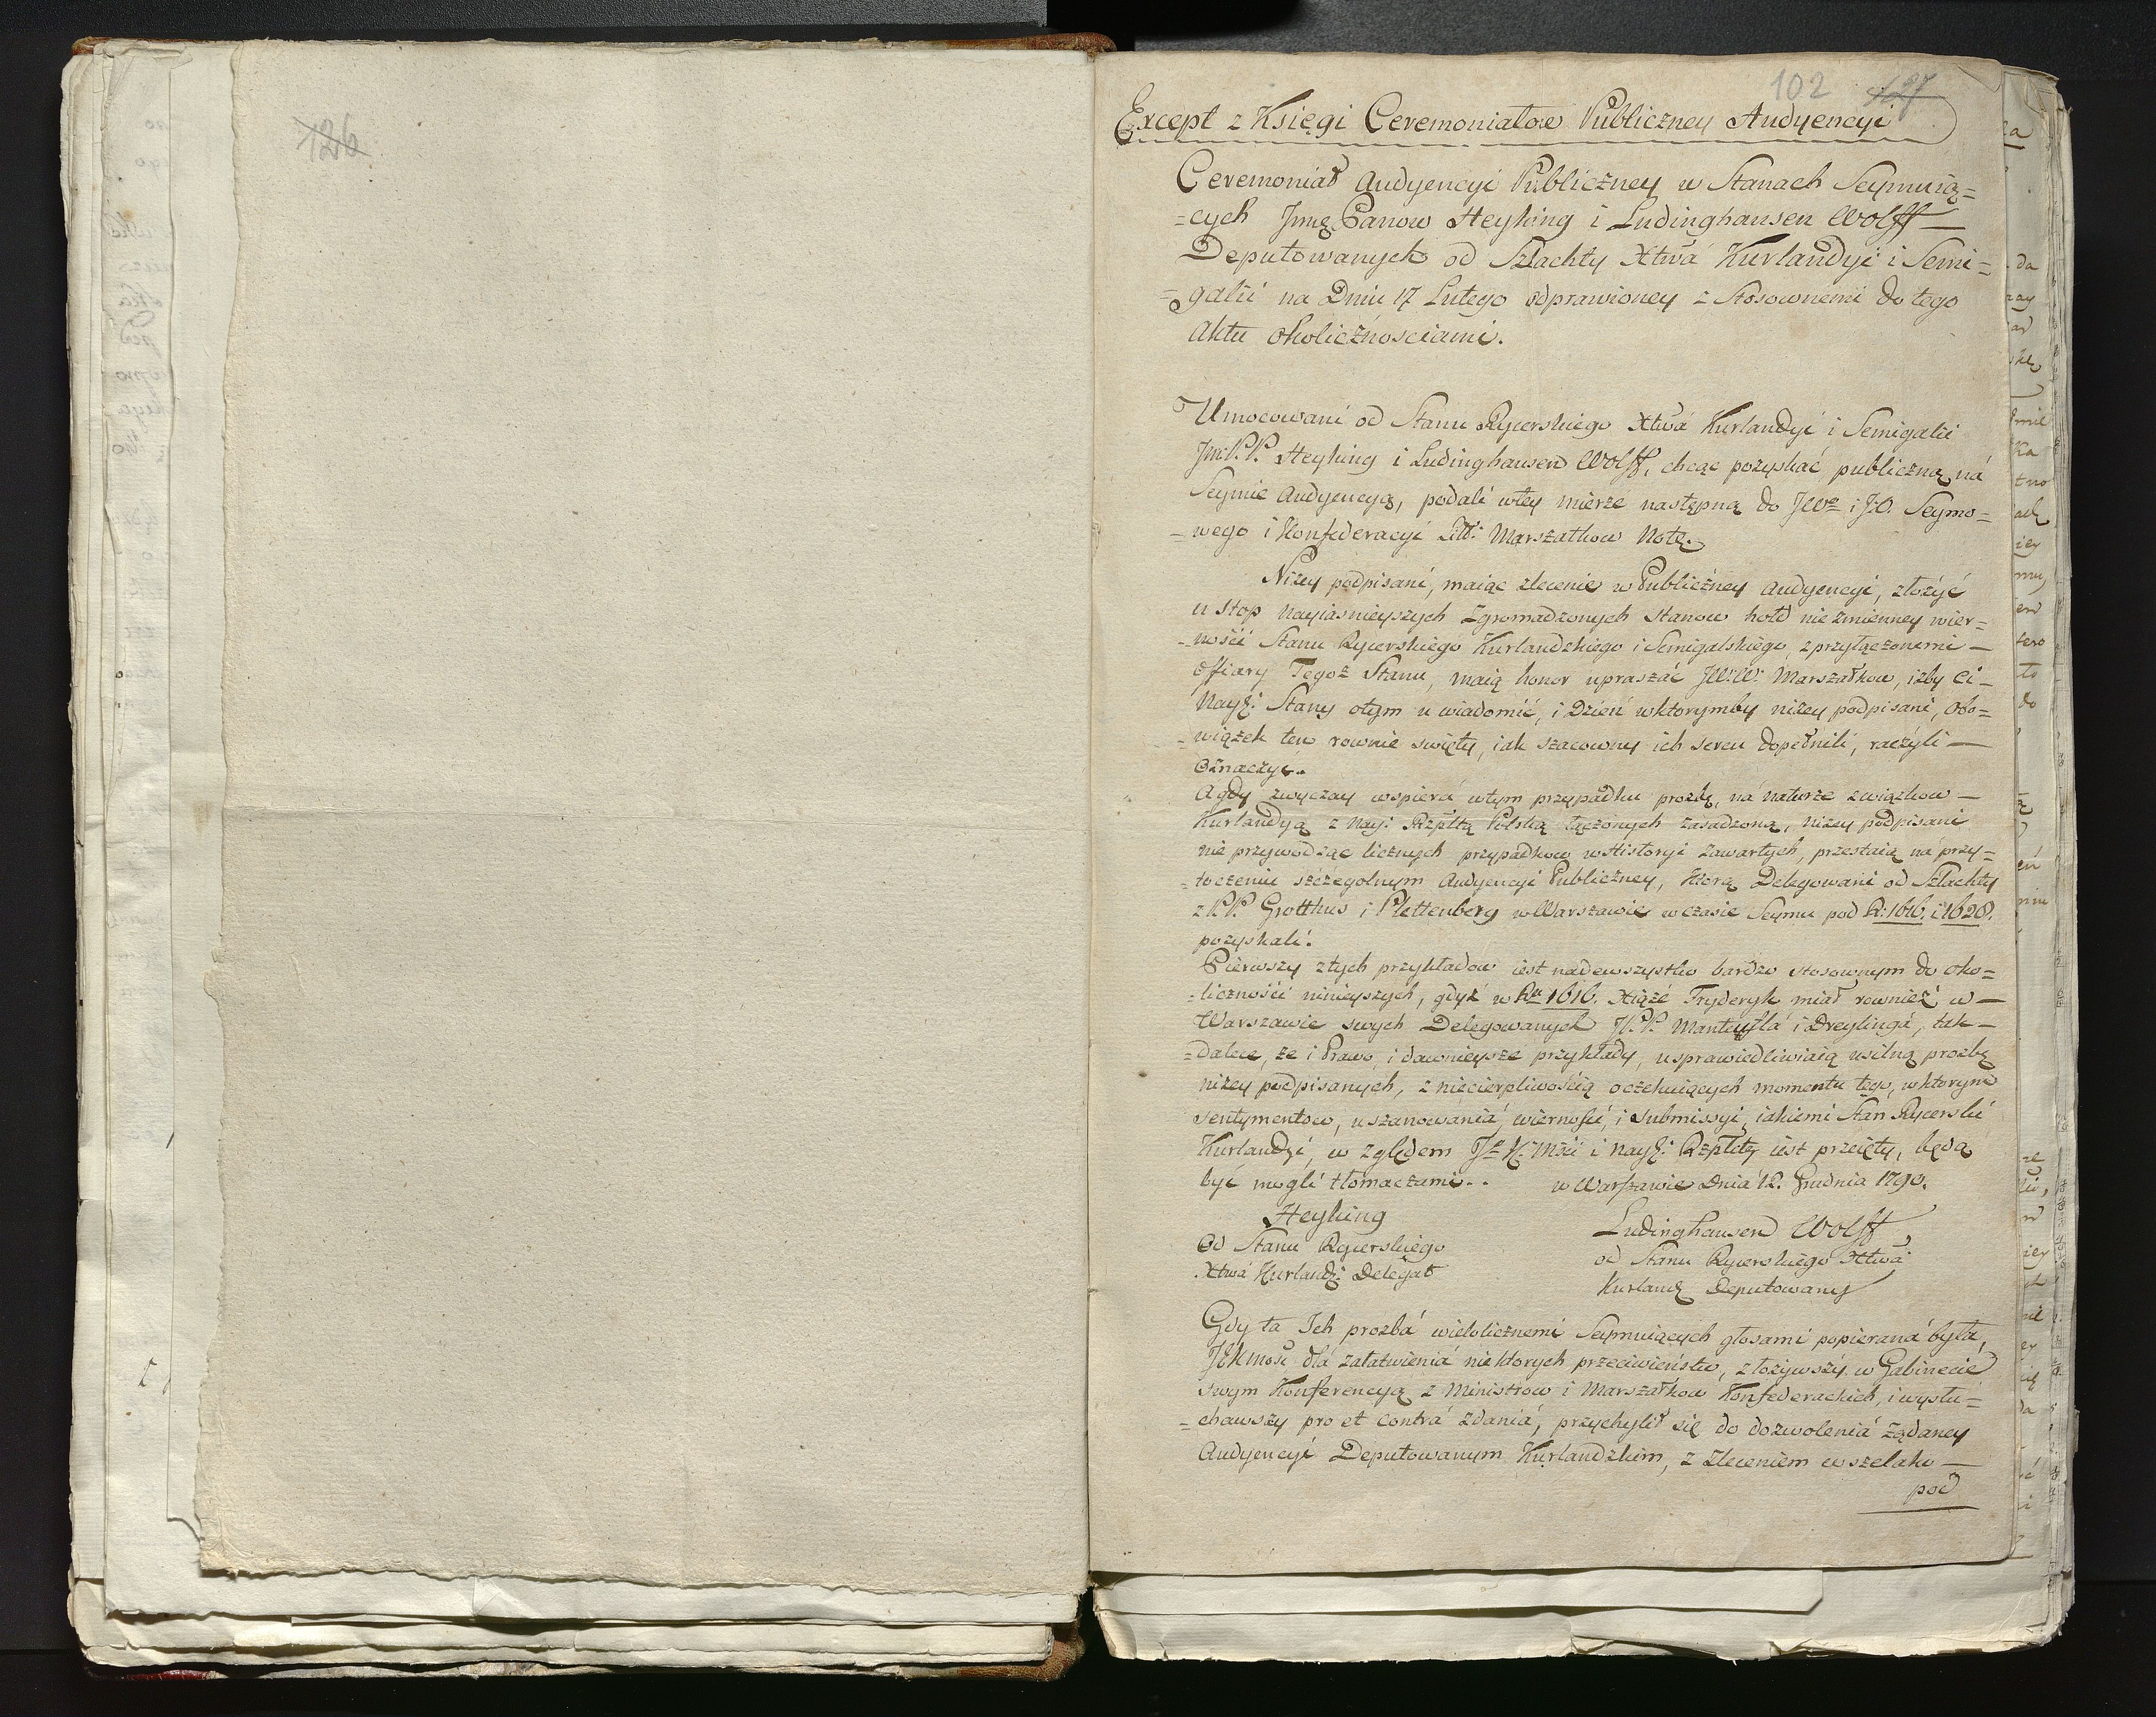 126
102 127
Except z Księgi Ceremoniałow Publiczney Audyencyi
Ceremoniał Audyencyi Publiczney w Stanach Seymuią=
=cych Jmę Panow Heyking i Ludinghausen Wolff —
Deputowanych od Szlachty Xtwá Kurlandyi i Semi=
=galii na Dniu 17 Lutego odprawioney z Stosownemi do tego
Aktu okolicznosciami.
Umocowani od Stanu Rycerskiego Xtwá Kurlandyi i Semigalii
Jm: P.P. Heyking i Ludinghausen Wolff, chcąc pozyskać publiczną ná
Seymie Audyencyą, podali wtey mierze następną do JWo i J:O. Seymo=
=wego i Konfederacyi Litt: Marszałkow Notę.
Niżey podpisani, maiąc zlecenie w Publiczney Audyencyi, złożyć
u stop Nayiasnieyszych Zgromadzonych Stanow hołd niezmienney wier=
=ności Stanu Rycerskiego Kurlandzkiego i Semigalskiego, z przyłączonemi —
Offiary Tegoż Stanu, maią honor upraszać JW:W: Marszałkow, iżby Ci —
Nayę: Stany otym uwiadomić, i Dzień wktorymby niżey podpisani, Obo=
=wiązek ten rownie swięty, iak szacowny ich sercu dopełnili, raczyli —
oznaczyć.
A gdy zwyczay wspiera wtym przypadku prozbę, ná naturze związkow —
Kurlandyą z Nay: Rzpltą Polską łączonych zasadzoną, niżey podpisani
nie przywodząc licznych przypadkow wHistoryi zawartych, przestaią na przy=
=toczeniu szczegolnym Audyencyi Publiczney, ktorą Delegowani od Szlachty
z P.P. Grotthus i Plettenberg w Warszawie w czasie Seymu pod R: 1616. i 1628.
pozyskali.
Pierwszy ztych przykładow iest nadewszystko bardzo stosownym do oko=
=liczności ninieyszych, gdyż w Ru 1616. Xiążé Fryderyk miał rownież w —
Warszawie swych Delegowanych J.P.P. Manteyflá i Dreylingá, tak —
=dalece, że i Prawo, i dawnieysze przykłady, usprawiedliwiaią usilną prozbę
niżey podpisanych, z niecierpliwością oczekuiących momentu tego, w ktorym
sentymentow, uszanowániá, wierności, i submissyi, iakiemi Stan Rycerski
Kurlandyi, w zględem Jo K: Mści i Nayę: Rzpltey iest przeięty, będą
być mogli tłomaczami.. w Warszawie Dnia 12. Grudnia 1790.
Heyking Ludinghausen Wolff,
Od Stanu Rycerskiego od Stanu Rycerskiego Xtwá
Xtwá Kurlandz: Delegat Kurlandz Deputowany
Gdy ta Ich prozbá wielolicznemi Seymuiących głosami popieraná była,
JKmość dlá załatwieniá niektorych przeciwieństw, złożywszy w Gabinecie
swym Konferencyą z Ministrow i Marszałkow Konfederackich, i wysłu=
=chawszy pro et contrá zdaniá, przychylił się do dozwoleniá żądaney
Audyencyi Deputowanym Kurlandzkim, z Zleceniem wszelako —
pod